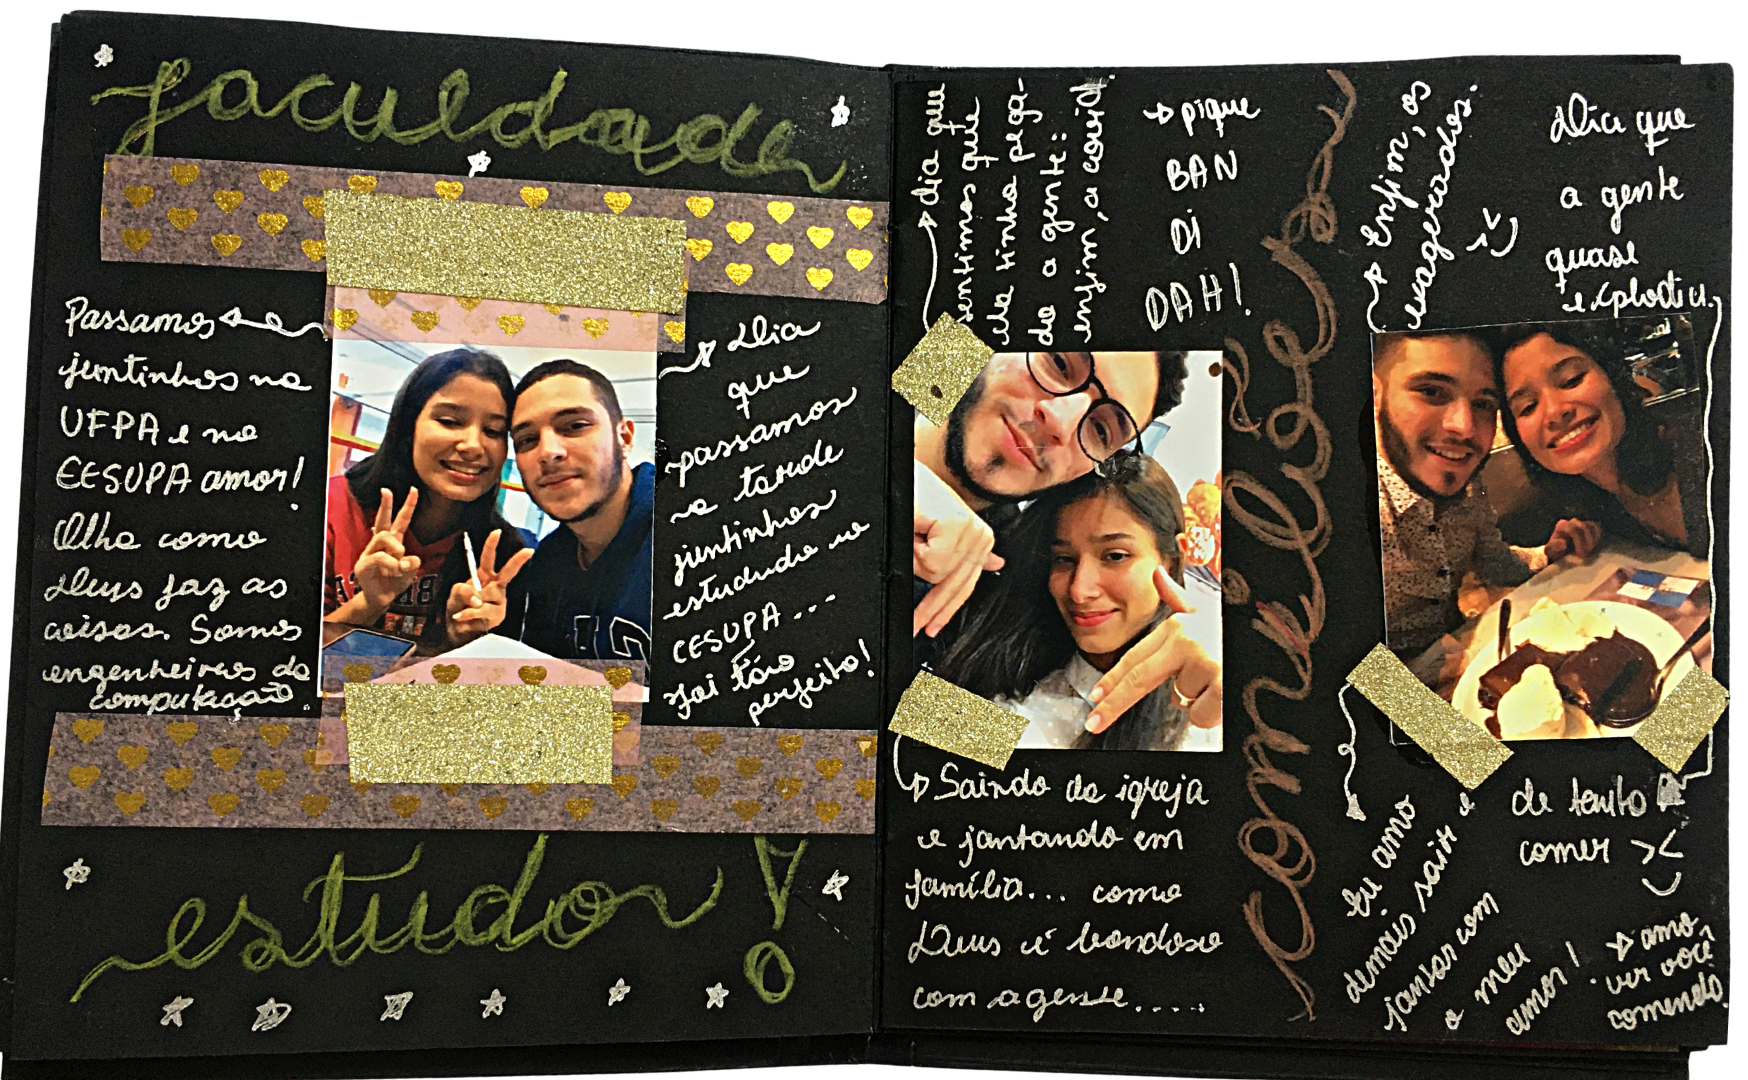 faculdade
Passamos
juntinhos na
UFPA e no
CESUPA amor!
Olha como
Deus faz as
coisas. Somos
engenheiros da
computação.
Dia
que
passamos
a tarde
juntinhos
estudando no
CESUPA...
foi tão
perfeito!
estudos!
dia que
sentimos que
ela tinha pega-
do a gente:
enfim, a covid.
pique
BAN
DI
DAH!
Saindo da igreja
e jantando em
família... como
Deus é bondoso
com a gente....
comilões
Enfim, os
exagerados.
Dia que
a gente
quase
explodiu
de tanto
comer ><
Eu amo
demais sair e
jantar com
o meu
amor!
amo
ver você
comendo.